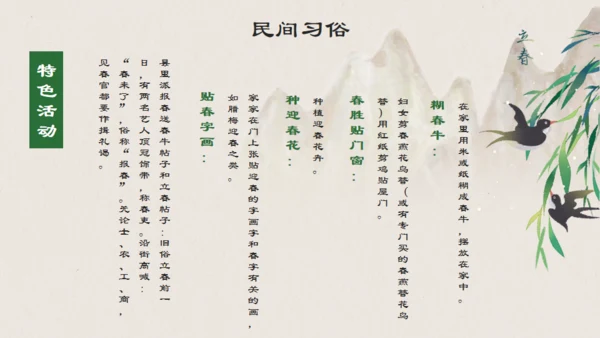 民间习俗
立春
特色活动
糊春牛：
在家里用米或纸糊成春牛，摆放在家中。
春胜贴门窗：
妇女剪春燕花鸟替（或有专门买的春燕替花鸟
替）用红纸剪鸡贴屋门。
种迎春花：
种植迎春花卉。
贴春字画：
家家在门上张贴迎春的字画字和春字有关的画，
如腊梅迎春之类。
县里派报春送春牛帖子和立春帖子：旧俗立春前一
日，有两名艺人顶冠饰带，称春吏。沿街高喊：
“春来了”，俗称“报春”。无论士、农、工、商，
见春官都要作揖礼谒。